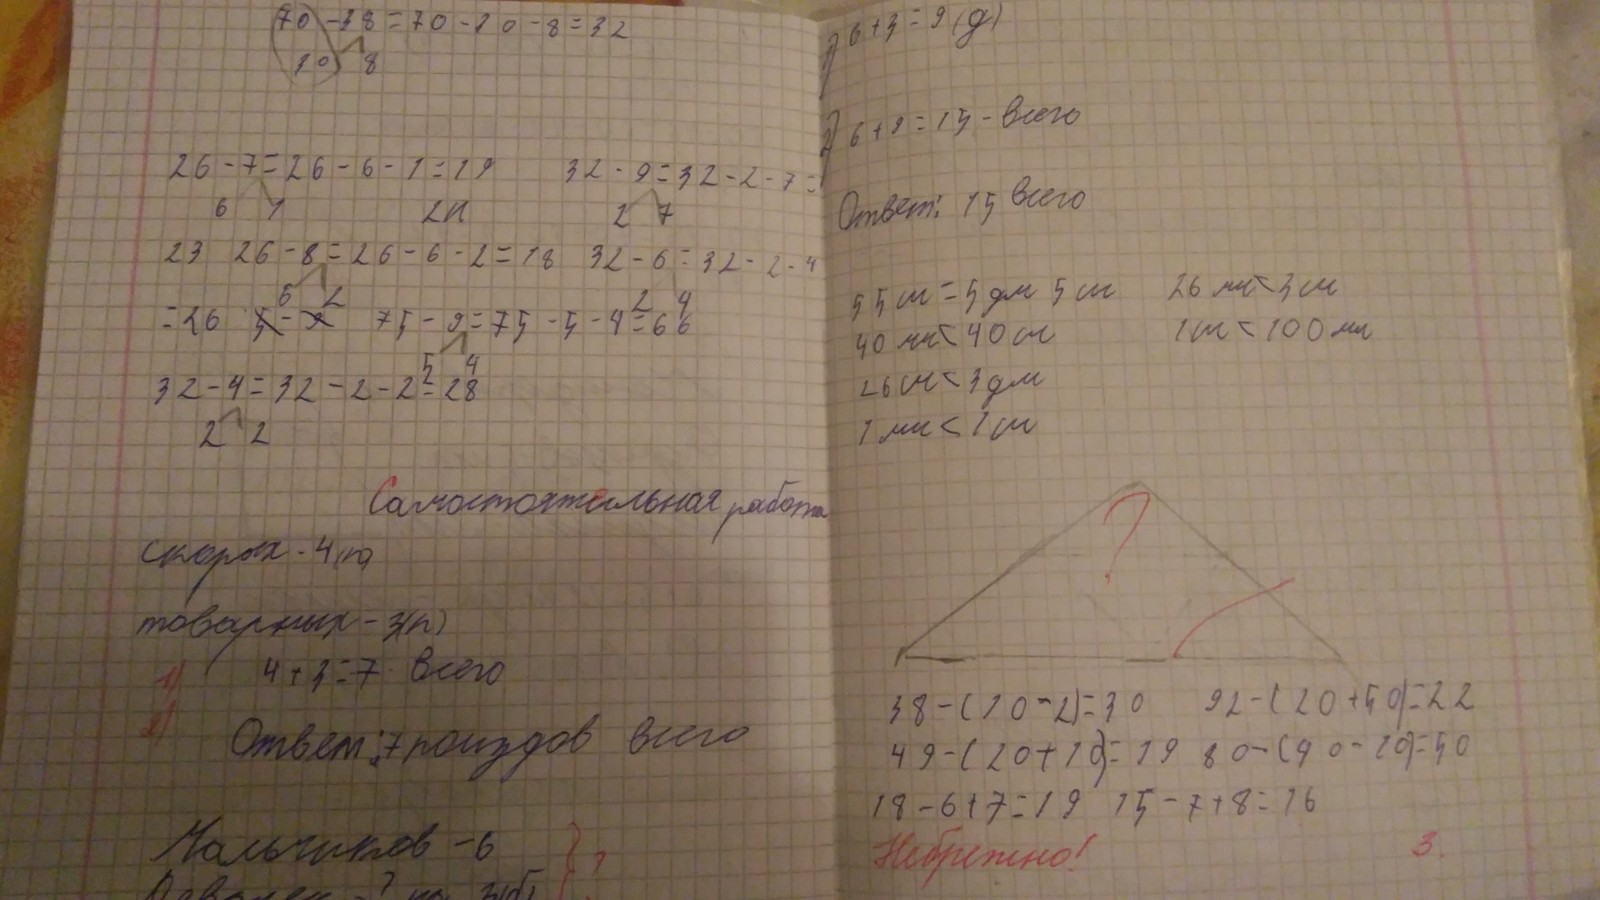 70-38=70-30-8=32
30 8
26-7=26-6-1=19 32-9=32-2-7=
6 1 2 7
23 26-8=26-6-2=18 32-6=32-2-4
6 2 2 4
=26 75-9=75-5-4=66
5 4
32-4=32-2-2=28
2 2
Самостоятельная работа
скорых - 4(п)
товарных - 3(п)
1) 4+3=7 всего
2)
Ответ: 7 поиздов всего
Мальчиков - 6
Девочек - ? на 3(б) } ?
1) 6+3=9(д)
2) 6+9=15 - всего
Ответ: 15 всего
55 см = 5 дм 5 см 26 мм < 3 см
40 мм < 40 см 1 см < 100 мм
26 см < 3 дм
1 мм < 1 см
?
38-(10-2)=30 92-(20+50)=22
49-(20+10)=19 80-(40-10)=50
18-6+7=19 15-7+8=16
Небрежно! 3.